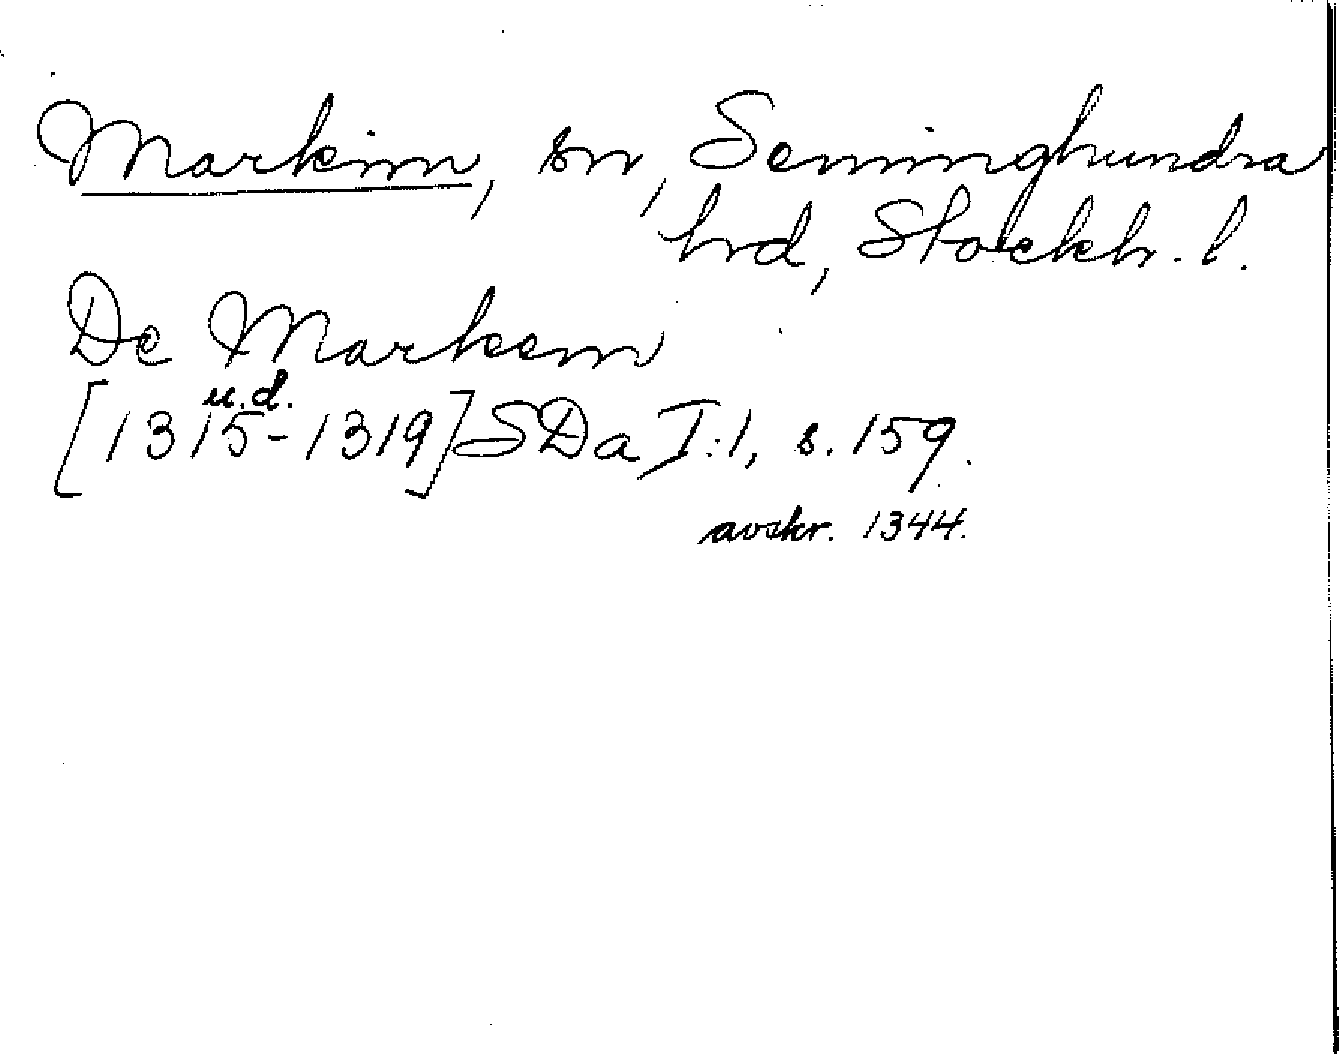 Markim, sn, Seminghundra
hrd, Stockh. l.
De Markem
u.d.
[1315-1319] SDa I:1, s. 159.
avskr. 1344.